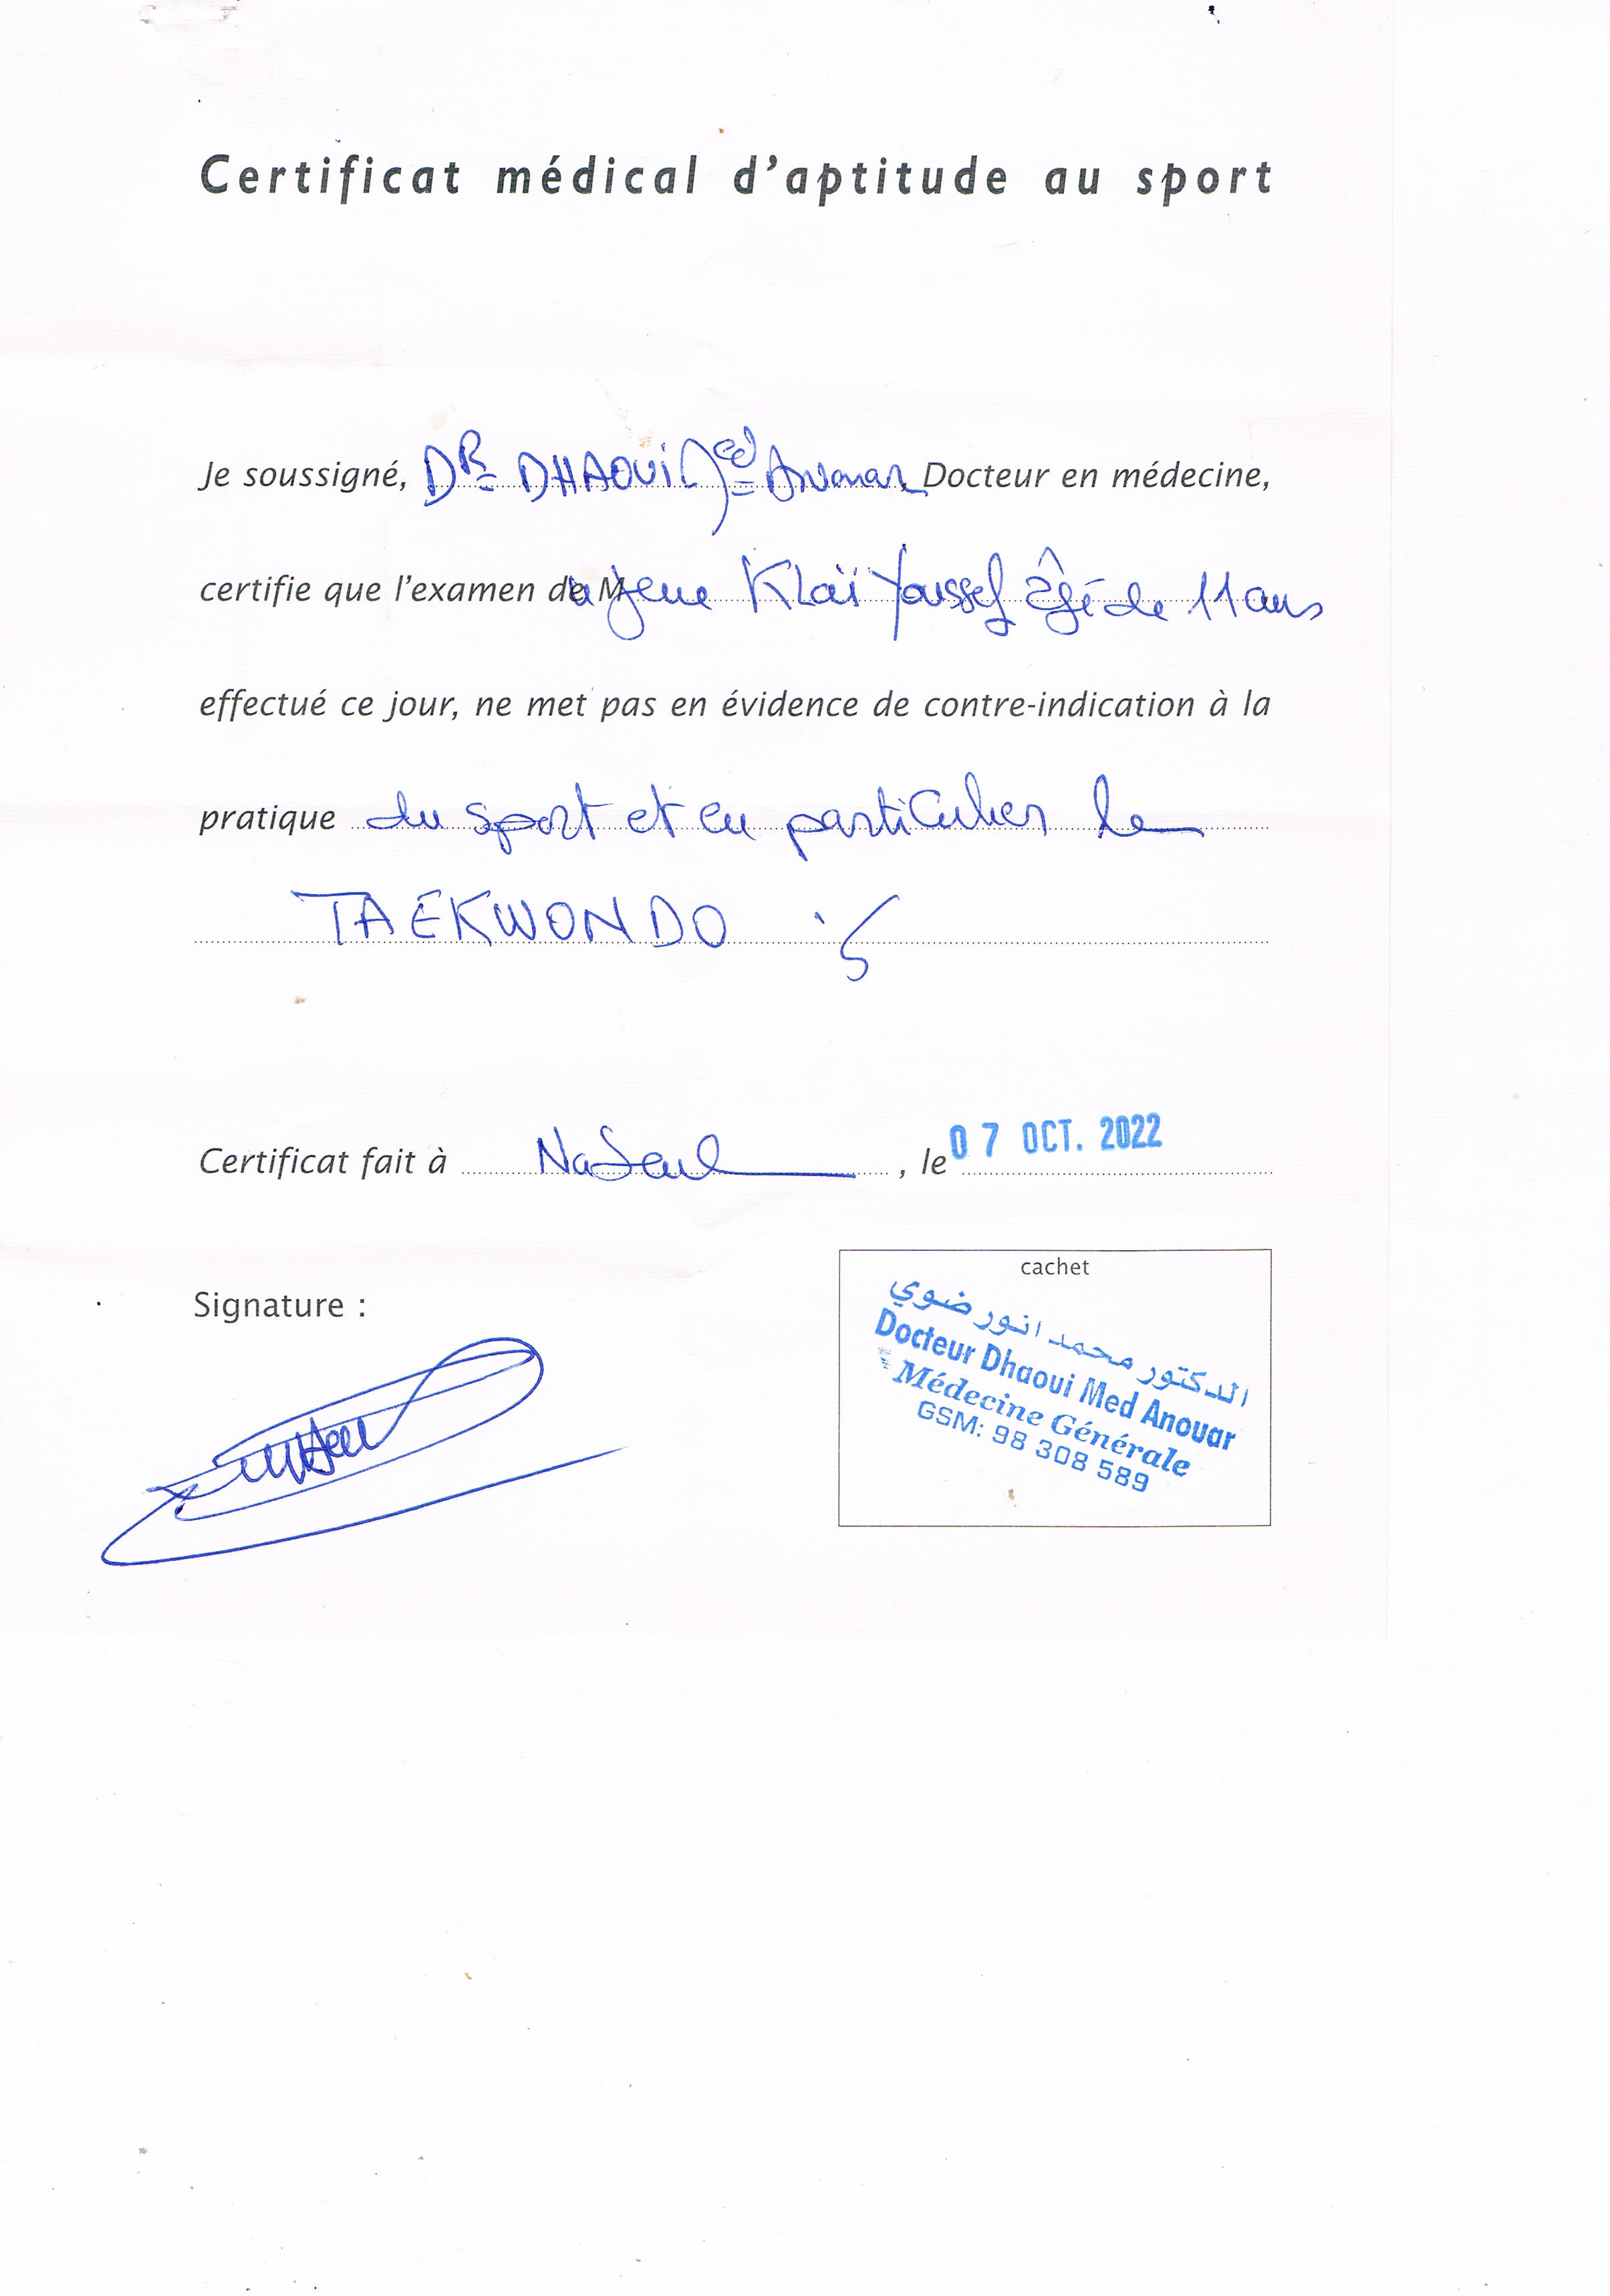 Certificat médical d'aptitude au sport
Je soussigné, DR DHAOUI Med Anouar, Docteur en médecine,
certifie que l'examen de M du jeune Klaï Youssef âgé de 11 ans
effectué ce jour, ne met pas en évidence de contre-indication à la
pratique du sport et en particulier le
TAEKWONDO
Certificat fait à Nabeul, le 07 OCT. 2022
cachet
Signature :
الدكتور محمد انور ضوي
Docteur Dhaoui Med Anouar
Médecine Générale
GSM: 98 308 589